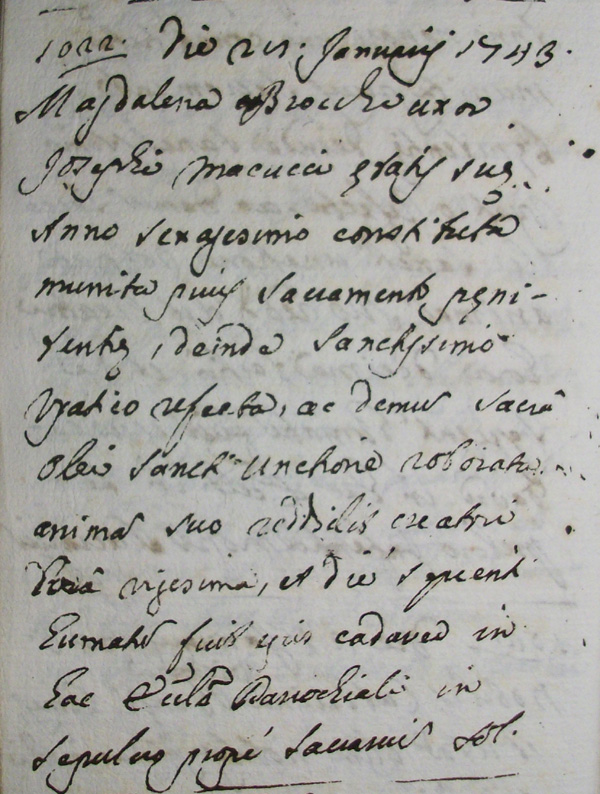 1022. Die 21. Januarij 1743.
Magdalena Brocchi uxor
Josephi Macucci ętatis suę
Anno sexagesimo constituta
munita prius sacramento pęni-
tentię, deinde sanctissimo
Viatico refecta, ac demum sacra
olei sancti unctione roborata
animam suo reddidit creatori
hora vigesima, et die sequenti
humatum fuit ejus cadaver in
hac Eccla Parochiali in
sepulcro prope sacrarium